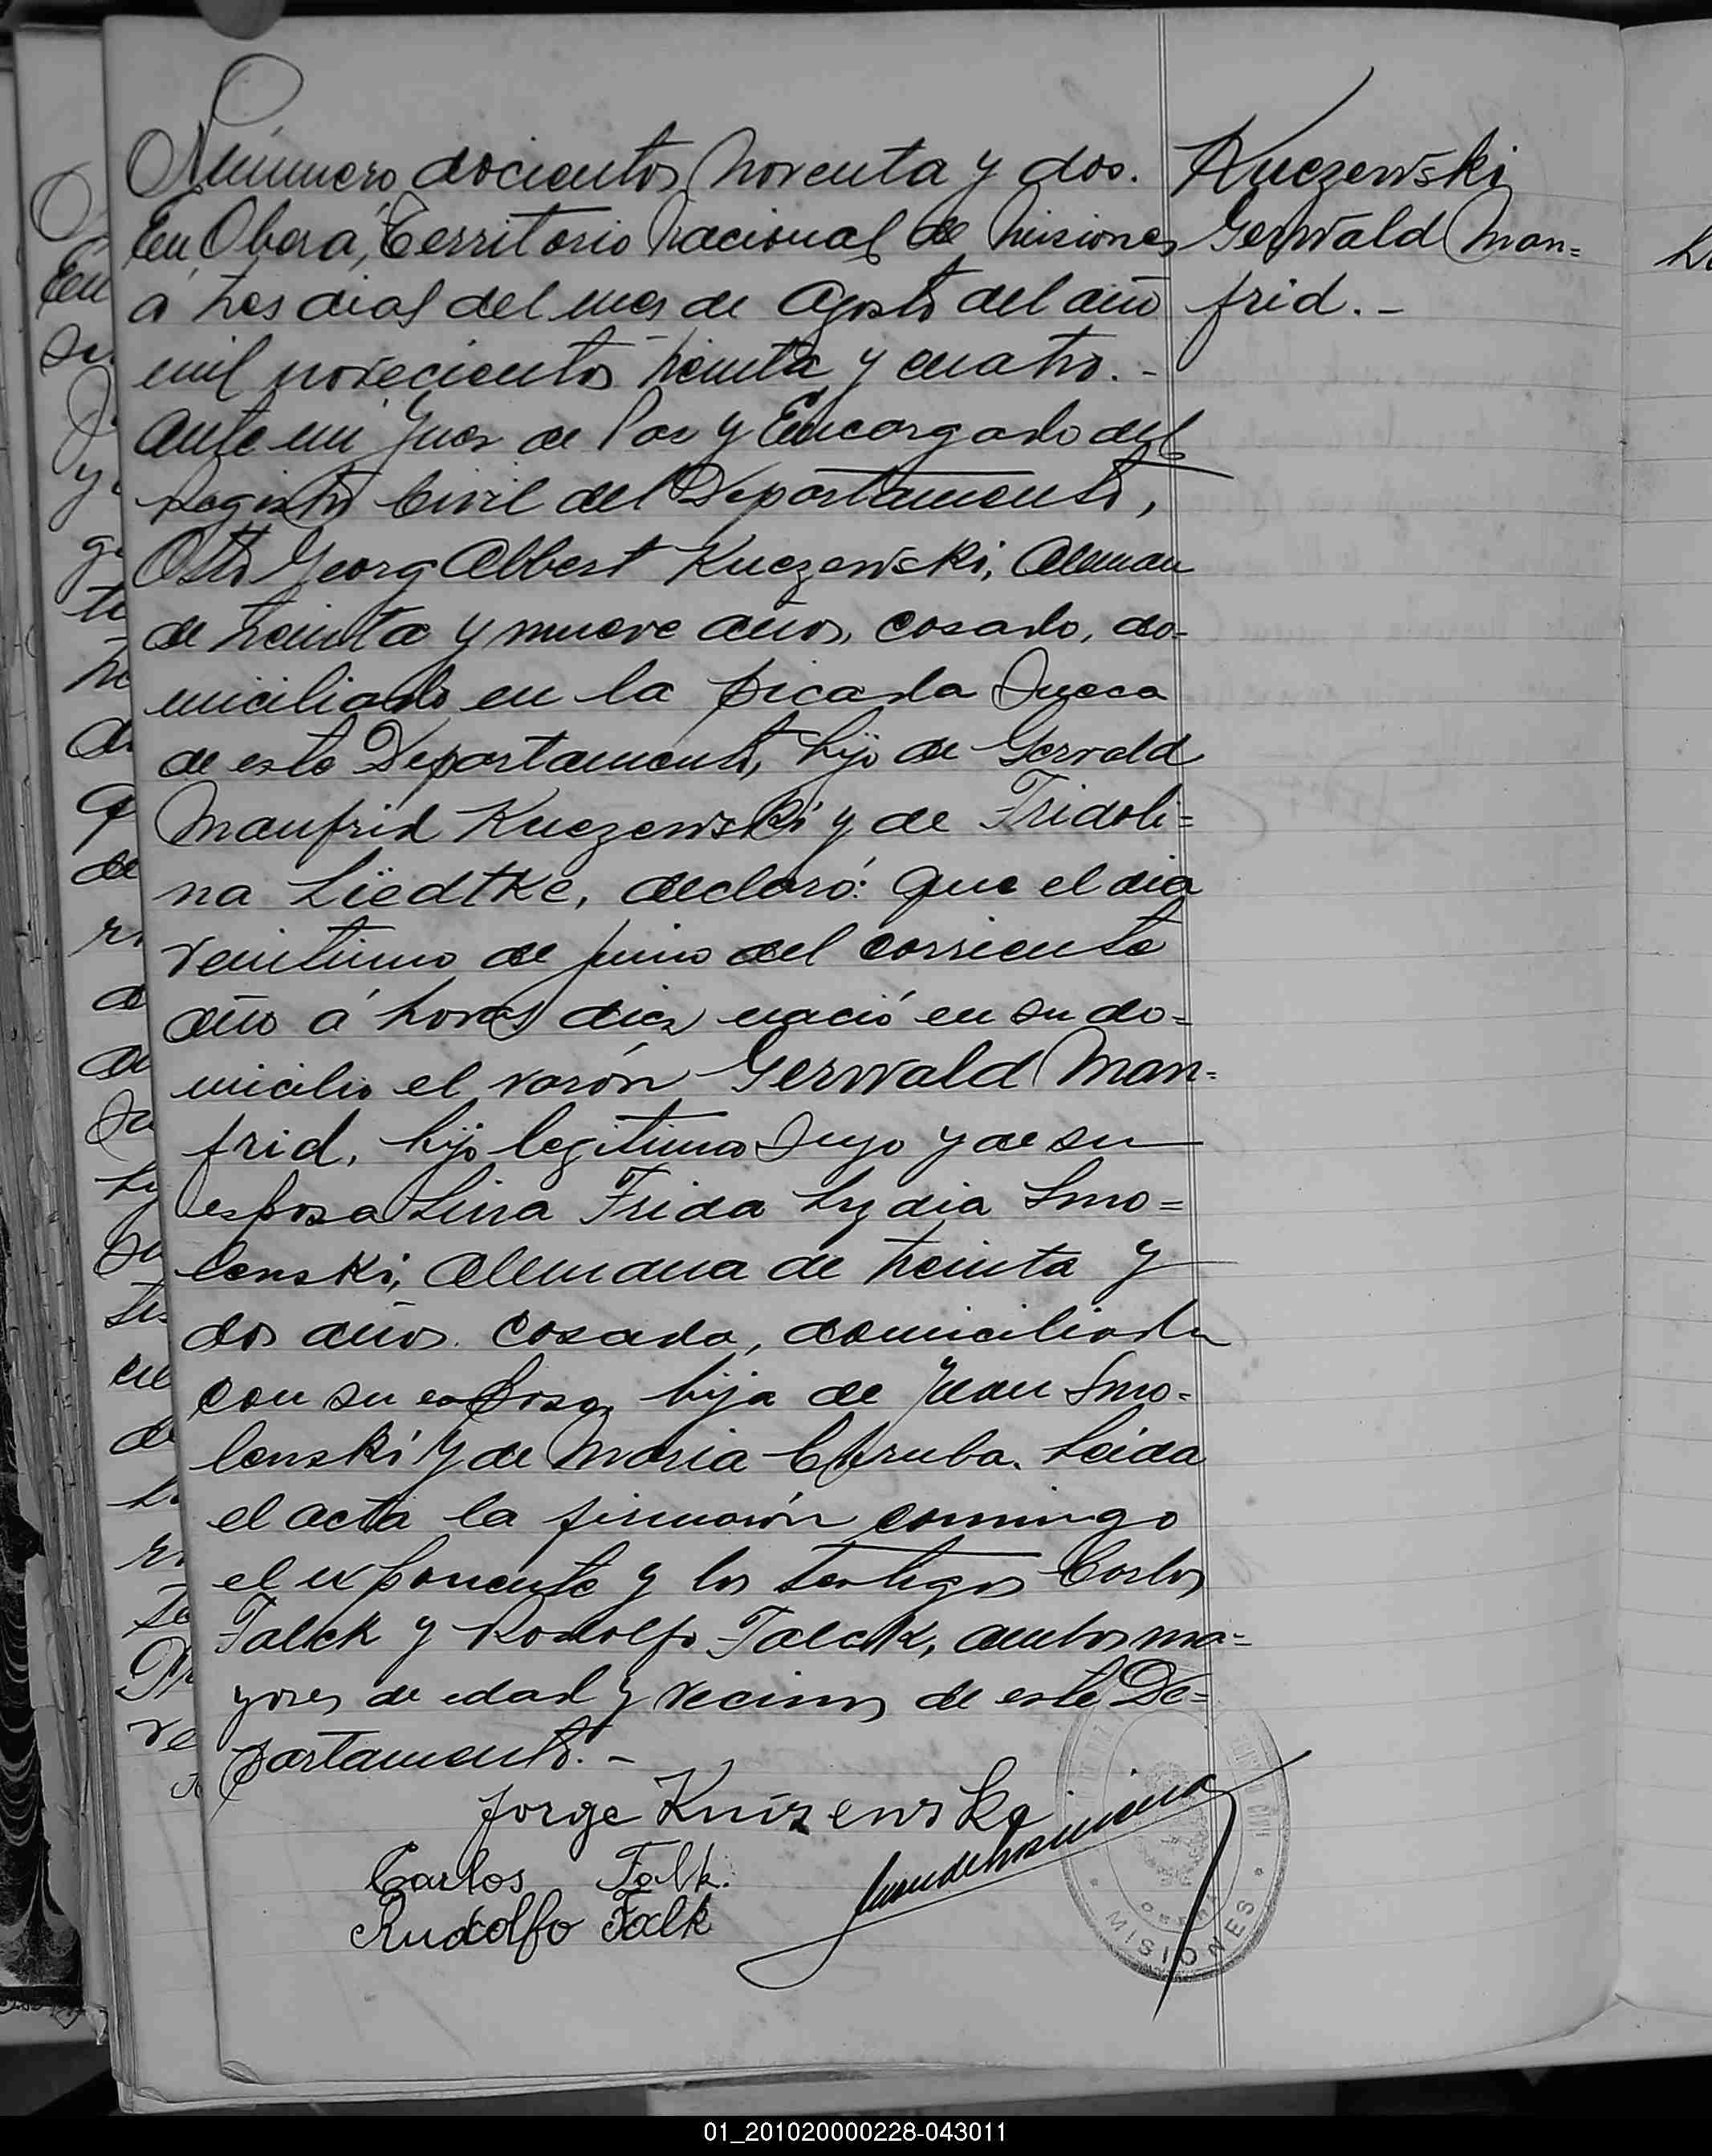 Número docientos noventa y dos.
En Oberá, Territorio Nacional de Misiones
á tres dias del mes de Agosto del año
mil novecientos treinta y cuatro.-
Ante mi Juez de Paz y Encargado del
Registro Civil del Departamento,
Otto Georg Albert Kuczewski, Aleman
de treinta y nueve años, casado, do-
miciliado en la picada Sueca
de este Departamento, hijo de Gerwald
Manfrid Kuczewski y de Fridoli=
na Liedtke, declaró: Que el dia
veintiuno de junio del corriente
año á horas diez nació en su do=
micilio el varón Gerwald Man=
frid, hijo legitimo suyo y de su
esposa Lina Frida Lydia Smo=
lenski, Alemana de treinta y
dos años, casada, domiciliada
con su esposo, hija de Juan Smo=
lenski y de Maria Chruba. Leida
el acta la firmarón conmigo
el exponente y los testigos Carlos
Falck y Rodolfo Falck, ambos ma=
yores de edad y vecinos de este De=
partamento.-
Kuczewski
Gerwald Man=
frid.-
Jorge Kuizewski
Carlos Falk.
Rudolfo Falk
MISIONES
01_201020000228-043011